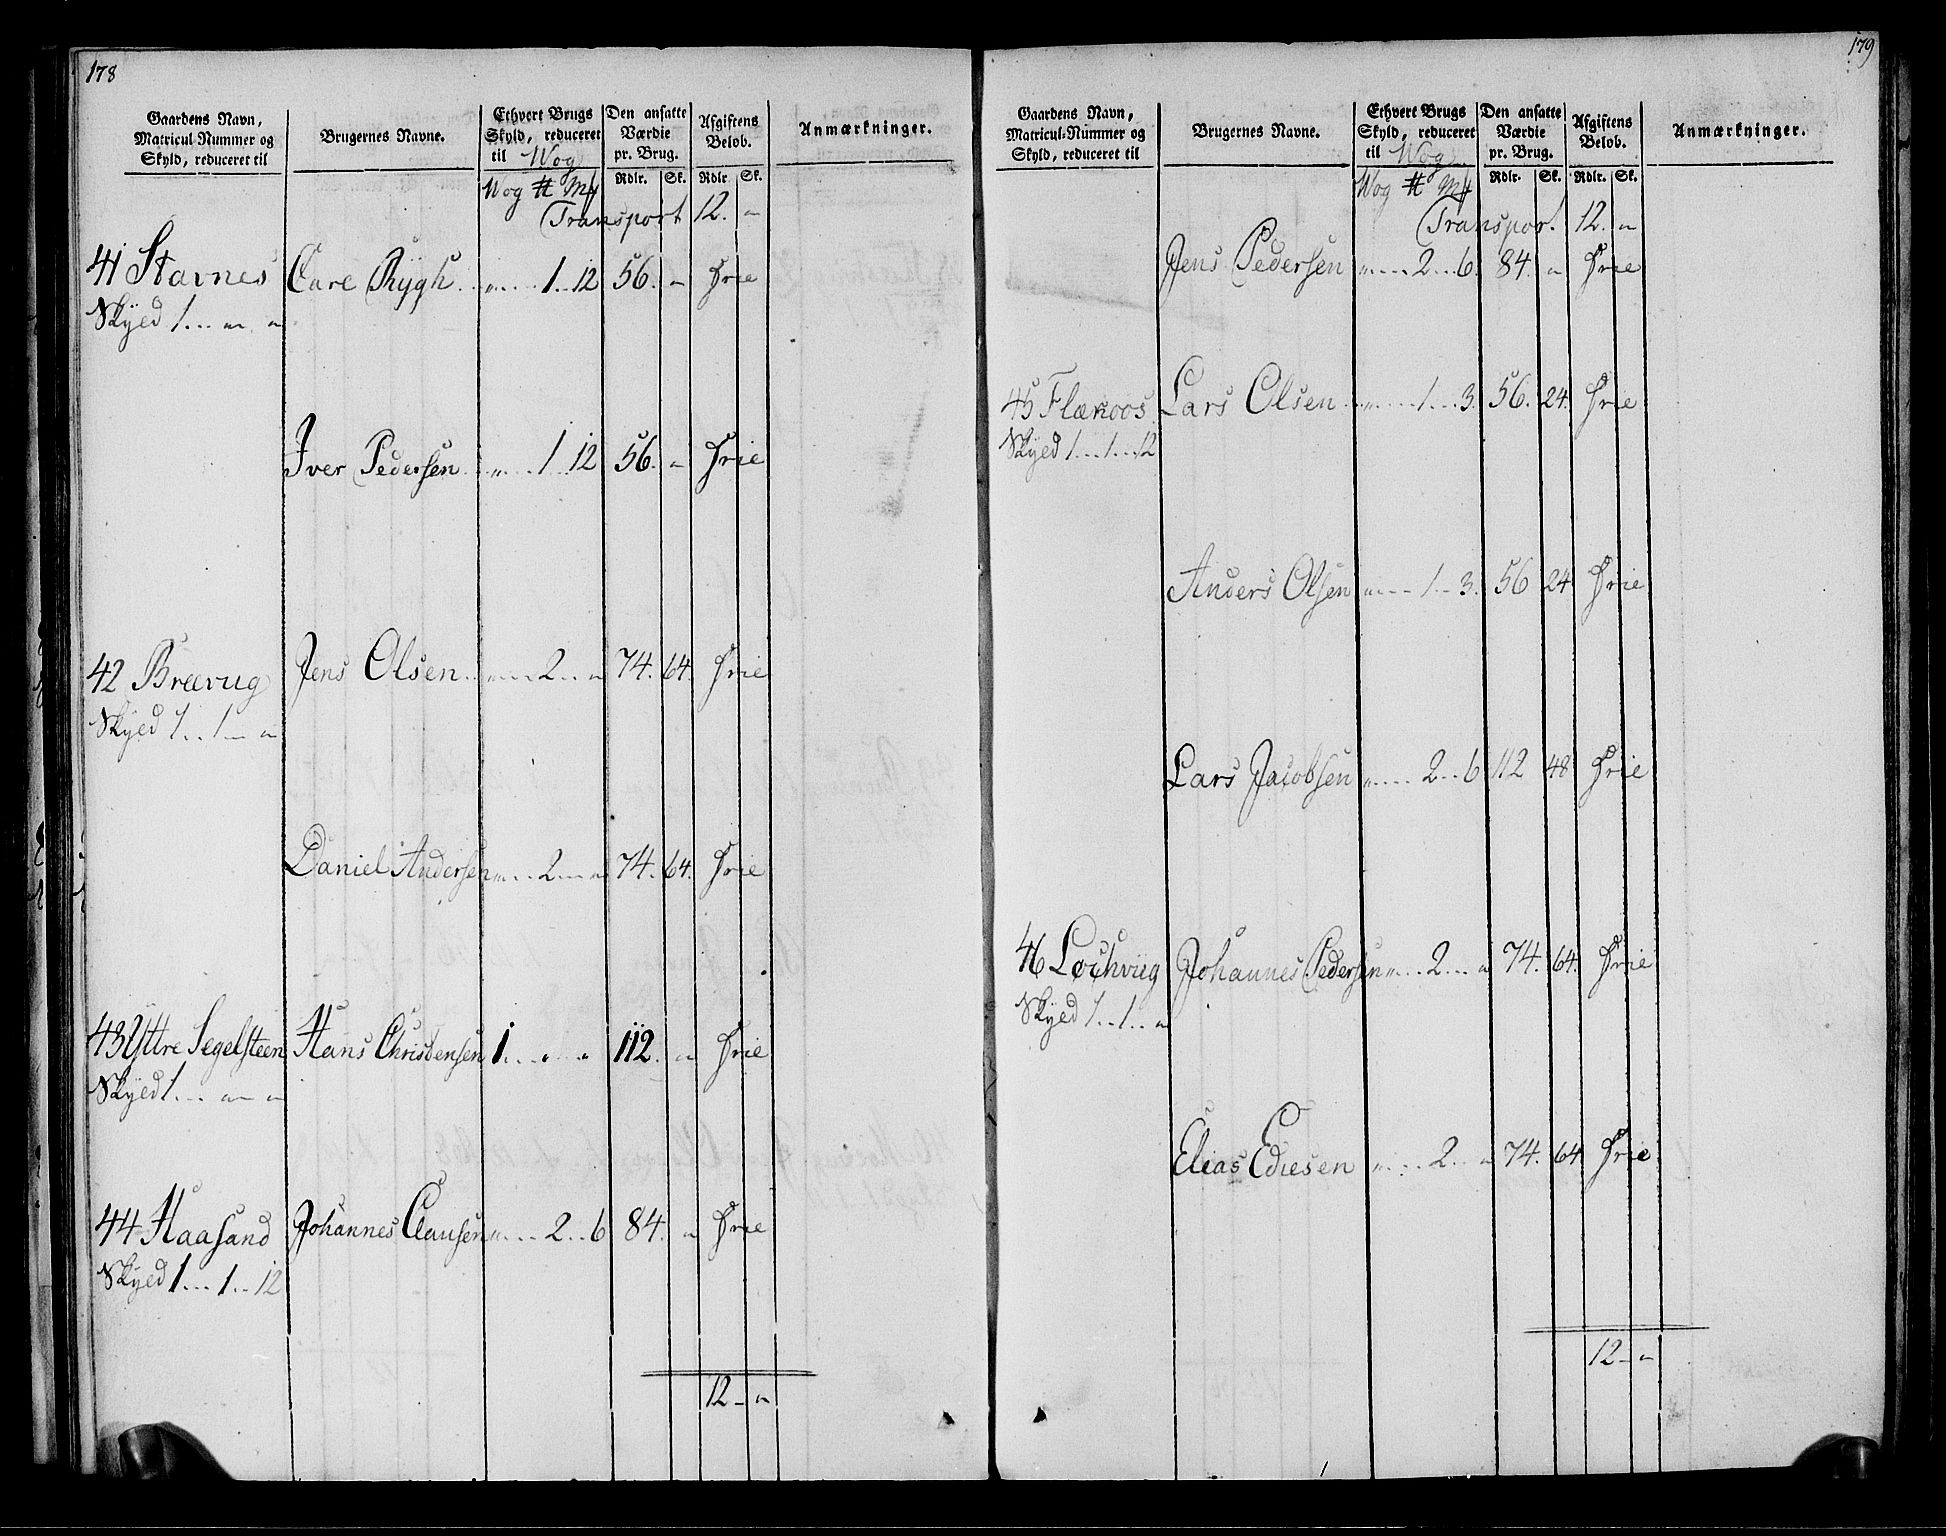 178
Gaardens Navn, Matricul Nummer og Skyld, reduceret til
Brugernes Navne.
Ethvert Brugs Skyld, reduceret til Wog
Den ansatte Værdie pr. Brug.
Afgiftens Beløb.
Anmærkninger.
Wog # Mk Rdlr. Sk. Rdlr. Sk.
Transport 12. "
41 Stavnes Carl Rygh " 1 .. 12 56. " Frie
Skyld 1 ... " "
Iver Pedersen " 1 .. 12 56. " Frie
42 Brævug Jens Olsen " 2 .. " 74. 64. Frie
Skyld 1 .. 1 "
Daniel Andersen " 2 " 74. 64. Frie
43 Yttre Segelsteen Hans Christensen 1 . " " 112. " Frie
Skyld 1 ... " "
44 Haasand Johannes Clausen " 2 .. 6 84. " Frie
Skyld 1 ... 1 .. 12
12 "
179
Gaardens Navn, Matricul-Nummer og Skyld, reduceret til
Brugernes Navne.
Ethvert Brugs Skyld, reduceret til Wog
Den ansatte Værdie pr. Brug.
Afgiftens Beløb.
Anmærkninger.
Wog # Mk Rdlr. Sk. Rdlr. Sk.
Transpor. 12. "
Jens Pedersen " 2 .. 6. 84. " Frie
45 Flækoos Lars Olsen " 1 .. 3. 56. 24. Frie
Skyld 1 ... 1 ... 12
Anders Olsen " 1 .. 3. 56 24 Frie
Lars Jacobsen " 2 .. 6 112 48 Frie
46 Lochviig Johannes Pedersen " 2 ... " 74. 64. Frie
Skyld 1 .. 1 .. "
Elias Ediesen " 2 .. " 74. 64 Frie
12 "